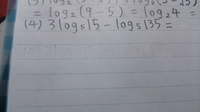 = log₂(9-5) = log₂4 =
(4) 3log₅15 - log₅135 =